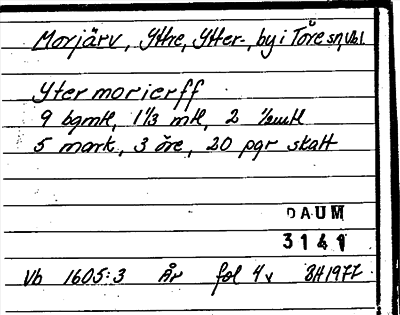 Morjärv, Yttre, Ytter-, by i Töre sn, Vb.
Ytermorierff
9 bgmtl, 1 1/3 mtl, 2
5 mark, 3 öre, 20 pgr skatt
DAUM
3141
Vb 1605:3 År fol 4v BH1977